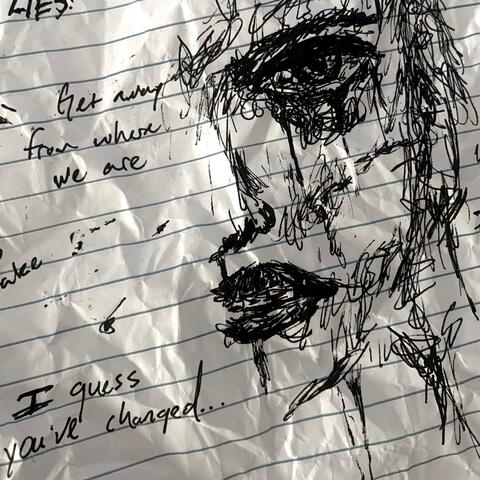 LIES!
Get away
from where
we are
I guess
you've changed...